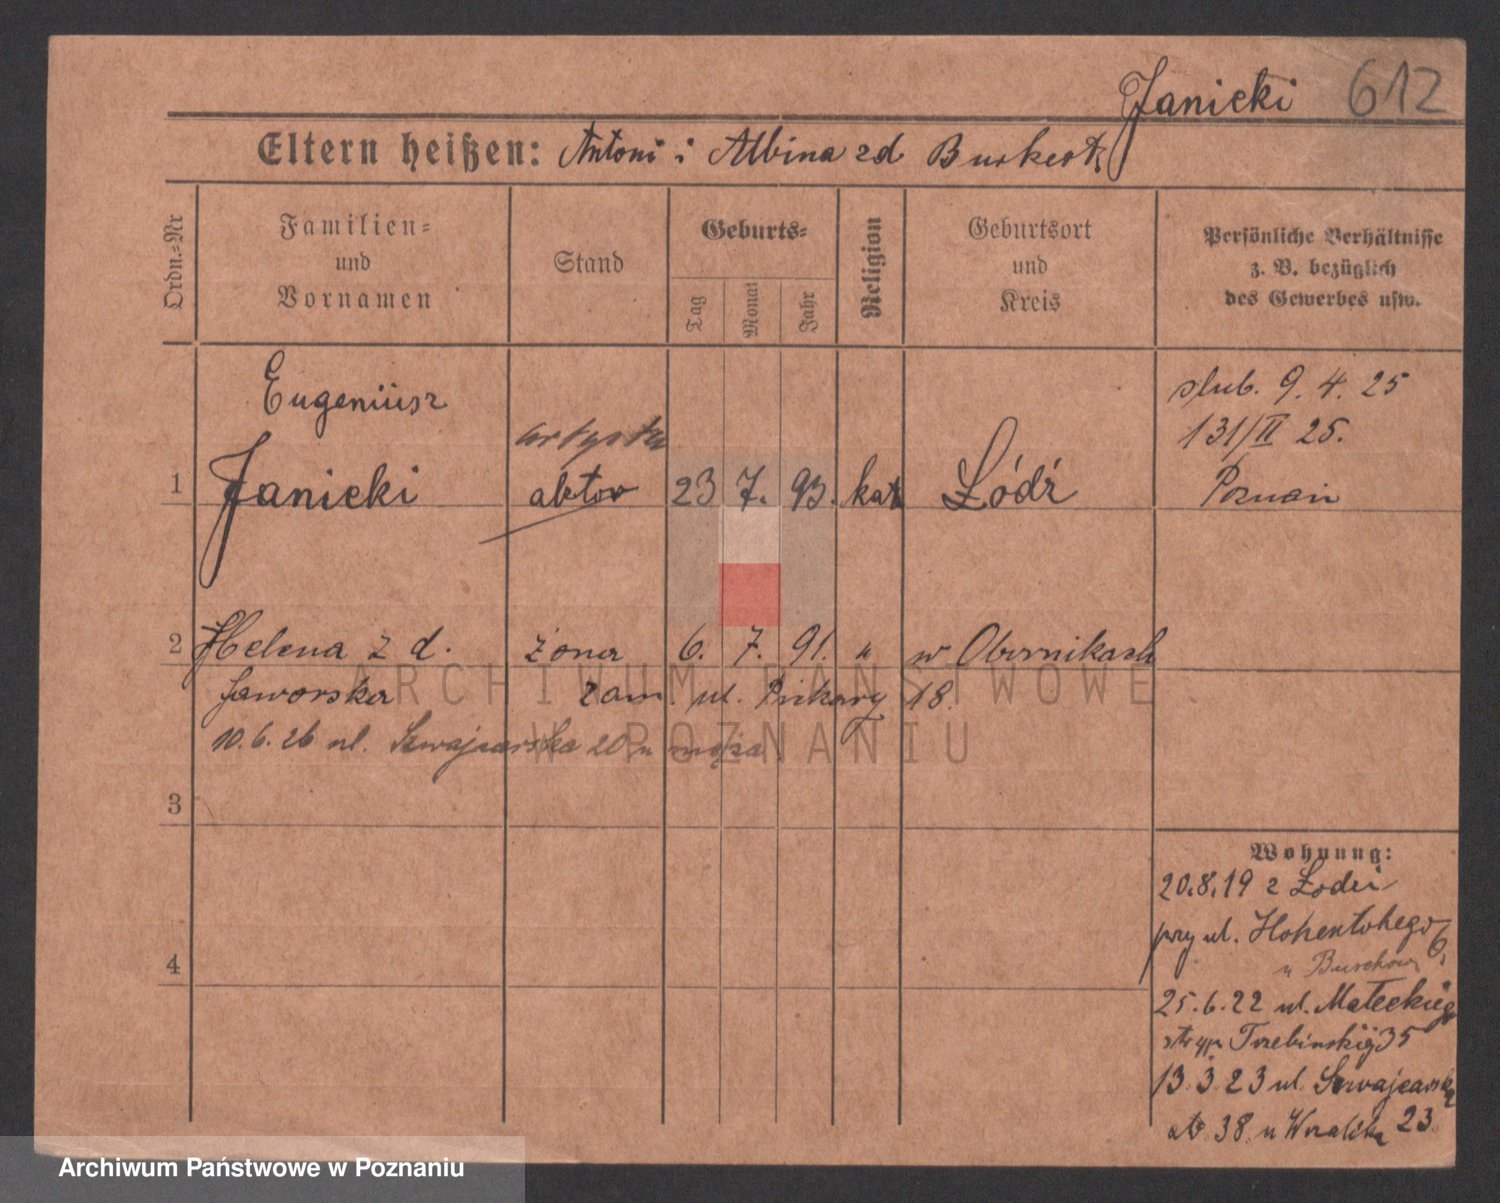 Janicki 612
Eltern heißen: Antoni i Albina zd Burkert
Ordn.-Nr
Familien- und Vornamen
Stand
Geburts-
Tag Monat Jahr
Religion
Geburtsort und Kreis
Persönliche Verhältnisse z. B. bezüglich des Gewerbes usw.
Eugeniusz
artysta
1 Janicki aktor 23 7. 93. kat Łódź
ślub. 9. 4. 25
131/II 25.
Poznań
2 Helena z d. żona 6. 7. 91. " w Obornikach
Jaworska zam. ul. Piekary 18.
10.6.26 ul. Szwajcarska 20 u męża
3
4
Wohnung:
20.8.19 z Łodzi
przy ul. Hohenlohego 6,
u
25.6.22 ul. Małeckiego
35
13.3.23 ul. Szwajcarska
38 u 23.
ARCHIWUM PAŃSTWOWE
W POZNANIU
Archiwum Państwowe w Poznaniu